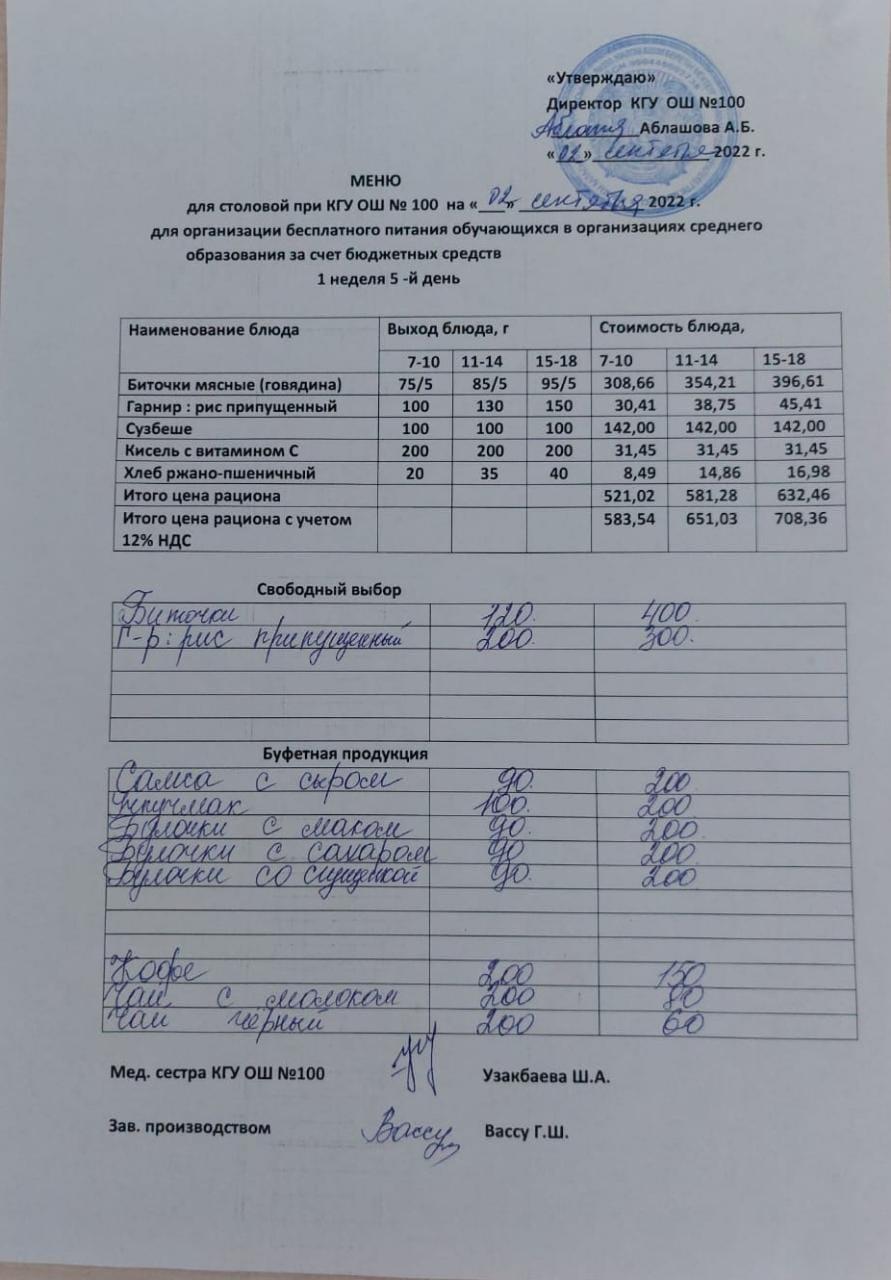 «Утверждаю»
Директор КГУ ОШ №100
Аблашова А.Б.
«02» сентября 2022 г.
МЕНЮ
для столовой при КГУ ОШ № 100 на «02» сентября 2022 г.
для организации бесплатного питания обучающихся в организациях среднего
образования за счет бюджетных средств
1 неделя 5 -й день
Наименование блюда Выход блюда, г Стоимость блюда,
7-10 11-14 15-18 7-10 11-14 15-18
Биточки мясные (говядина) 75/5 85/5 95/5 308,66 354,21 396,61
Гарнир : рис припущенный 100 130 150 30,41 38,75 45,41
Сузбеше 100 100 100 142,00 142,00 142,00
Кисель с витамином С 200 200 200 31,45 31,45 31,45
Хлеб ржано-пшеничный 20 35 40 8,49 14,86 16,98
Итого цена рациона 521,02 581,28 632,46
Итого цена рациона с учетом 583,54 651,03 708,36
12% НДС
Свободный выбор
Биточки 120. 400
Г-р: рис припущенный 200. 300.
Буфетная продукция
Самса с сыром 90. 200
Учпучмак 100. 200
Булочки с маком 90. 200
Булочки с сахаром 90 200
Булочки со сгущенкой 90. 200
Кофе 200 150
Чай с молоком 200 80
Чай чёрный 200 60
Мед. сестра КГУ ОШ №100 Узакбаева Ш.А.
Зав. производством Вассу Вассу Г.Ш.